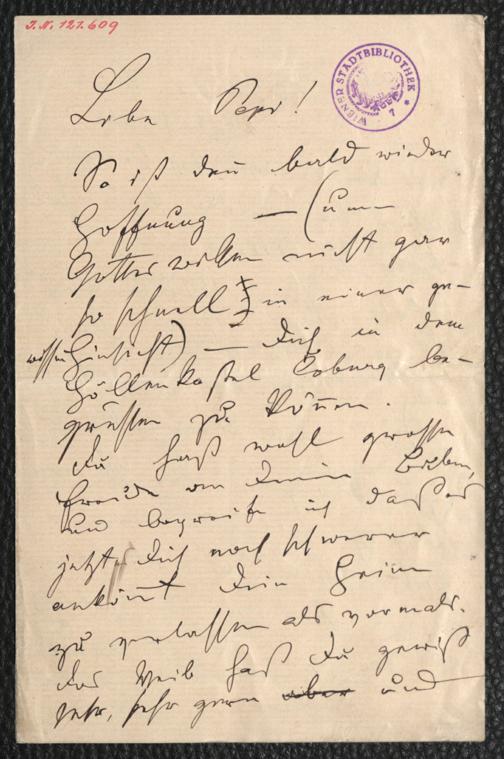 J.N. 121.609
WIENER STADTBIBLIOTHEK
Liebe Pepi!
So ist den̅ bald wieder
Hoffnung — (um
Gottes willen nicht gar
so schnell in einer ge-
wissen Hinsicht) — Dich in dem
Höllenkastel Coburg be-
grüssen zu kön̅en.
Du hast wohl grosse
Freude an Deinen Buben,
und begreife ich dass es
jetzt Dich noch schwerer
ankom̅t Dein Heim
zu verlassen als vormals.
Das Weib hast Du gewiss
sehr, sehr gern aber und